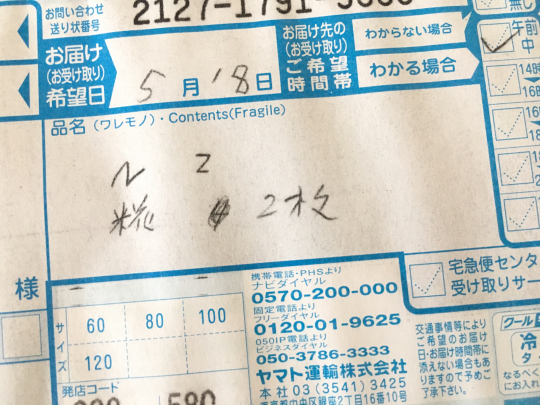 お問い合わせ
送り状番号
お届け
(お受け取り)
希望日
5月18日
お届け先の
(お受け取り)
ご希望
時間帯
わからない場合
わかる場合
無し
午前
中
14時
16時
16
18
品名(ワレモノ)・Contents(Fragile)
N 2
糀 2枚
様
サイズ
60 80 100
120
発店コード
携帯電話・PHSより
ナビダイヤル
0570-200-000
固定電話より
フリーダイヤル
0120-01-9625
050IP電話より
ビジネスダイヤル
050-3786-3333
ヤマト運輸株式会社
本社 03(3541)3425
東京都中央区銀座2丁目16番10号
宅急便センタ
受け取りサー
交通事情等により
ご希望のお届け
日・お届け時間帯に
添えない場合もあ
りますので予めご
了承下さい。
クール
冷
なるべく
にお入れ